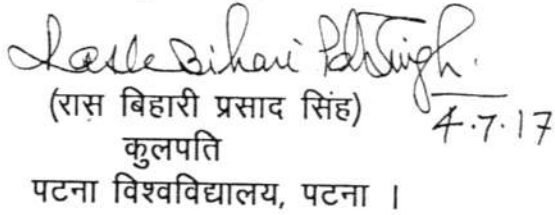 Rasle Bihari Pd Singh.
(रास बिहारी प्रसाद सिंह)
4.7.17
कुलपति
पटना विश्वविद्यालय, पटना ।